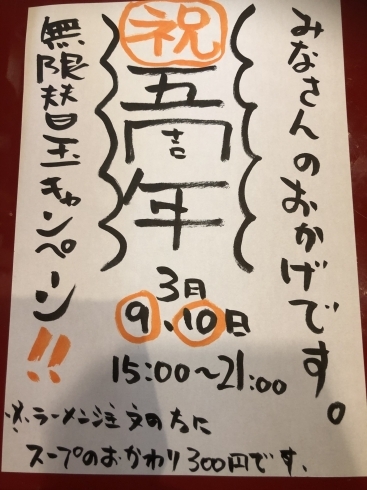 みなさんのおかげです。
祝
五周年
無限替玉キャンペーン!!
3月
9、10日
15:00〜21:00
※ラーメン注文の方に
スープのおかわり300円です、